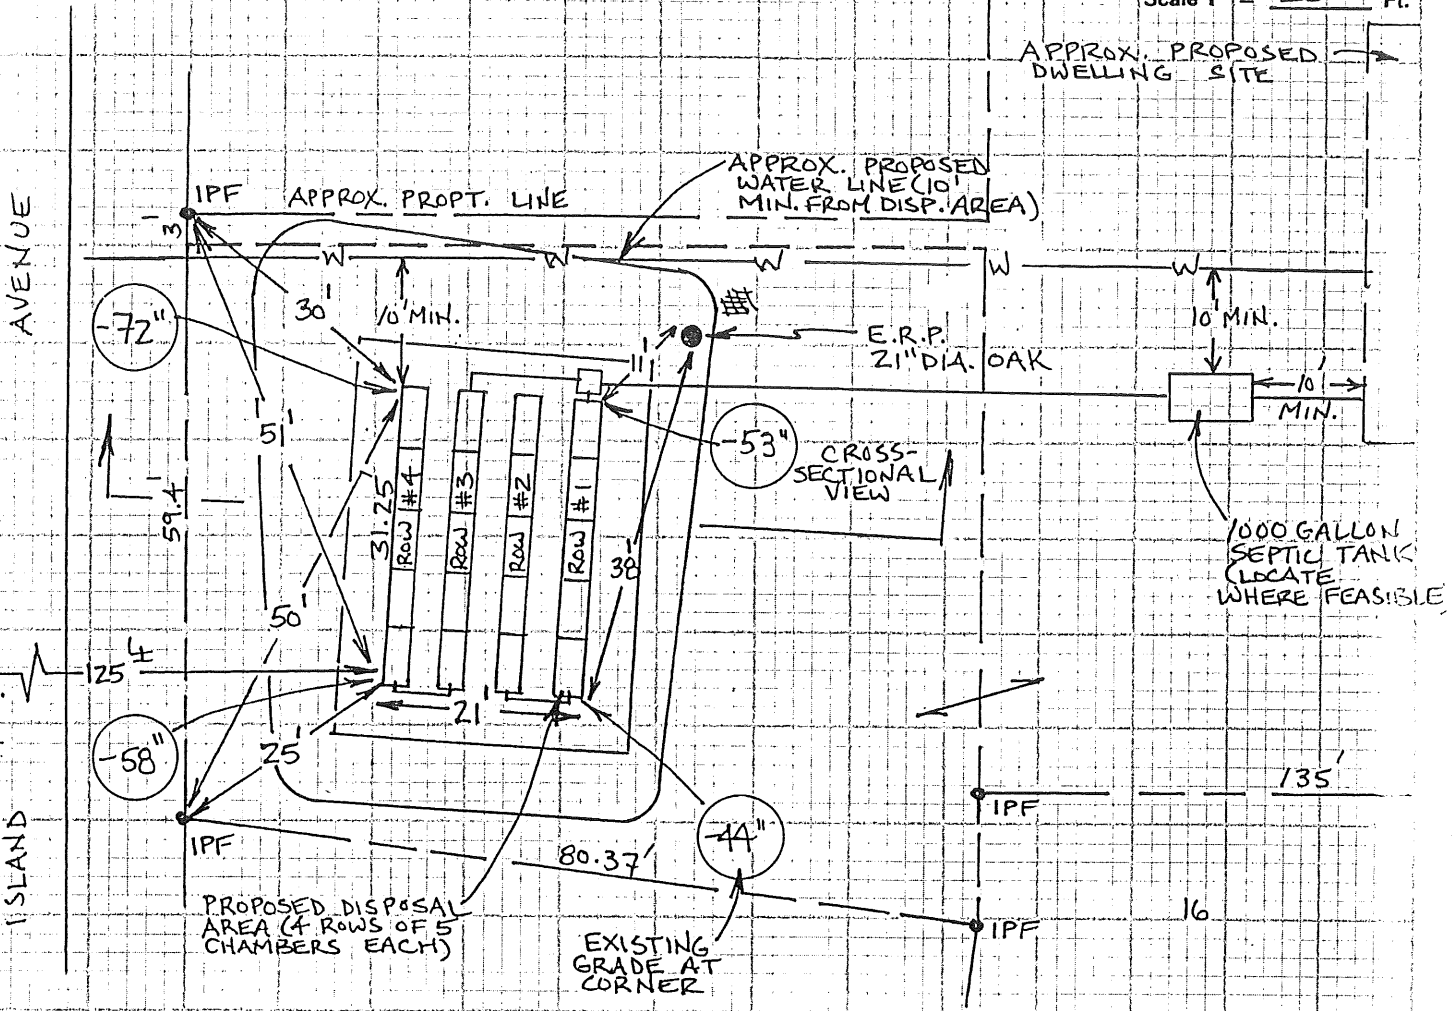 Scale 1" = Ft.
APPROX. PROPOSED
DWELLING SITE
APPROX. PROPOSED
WATER LINE (10'
MIN. FROM DISP. AREA)
IPF
APPROX. PROPT. LINE
3'
AVENUE
W W W W W
30'
10' MIN.
-72"
11'
E.R.P.
21" DIA. OAK
10' MIN.
10'
MIN.
51'
-53"
CROSS-
SECTIONAL
VIEW
59.4'
31.25
ROW #4
ROW #3
ROW #2
ROW #1
38'
1000 GALLON
SEPTIC TANK
(LOCATE
WHERE FEASIBLE
50'
125' ±
21'
-58"
25'
135'
IPF
IPF
-44"
80.37'
ISLAND
PROPOSED DISPOSAL
AREA (4 ROWS OF 5
CHAMBERS EACH)
EXISTING
GRADE AT
CORNER
IPF
16